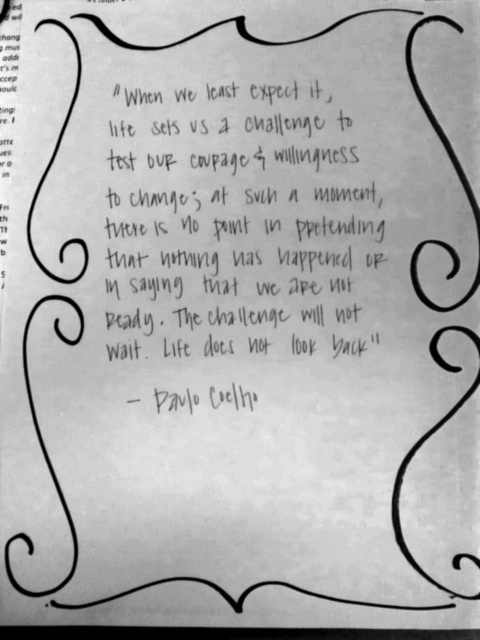 "When we least expect it,
life sets us a challenge to
test our courage & willingness
to change; at such a moment,
there is no point in pretending
that nothing has happened or
in saying that we are not
ready. The challenge will not
wait. Life does not look back"
– Paulo Coelho